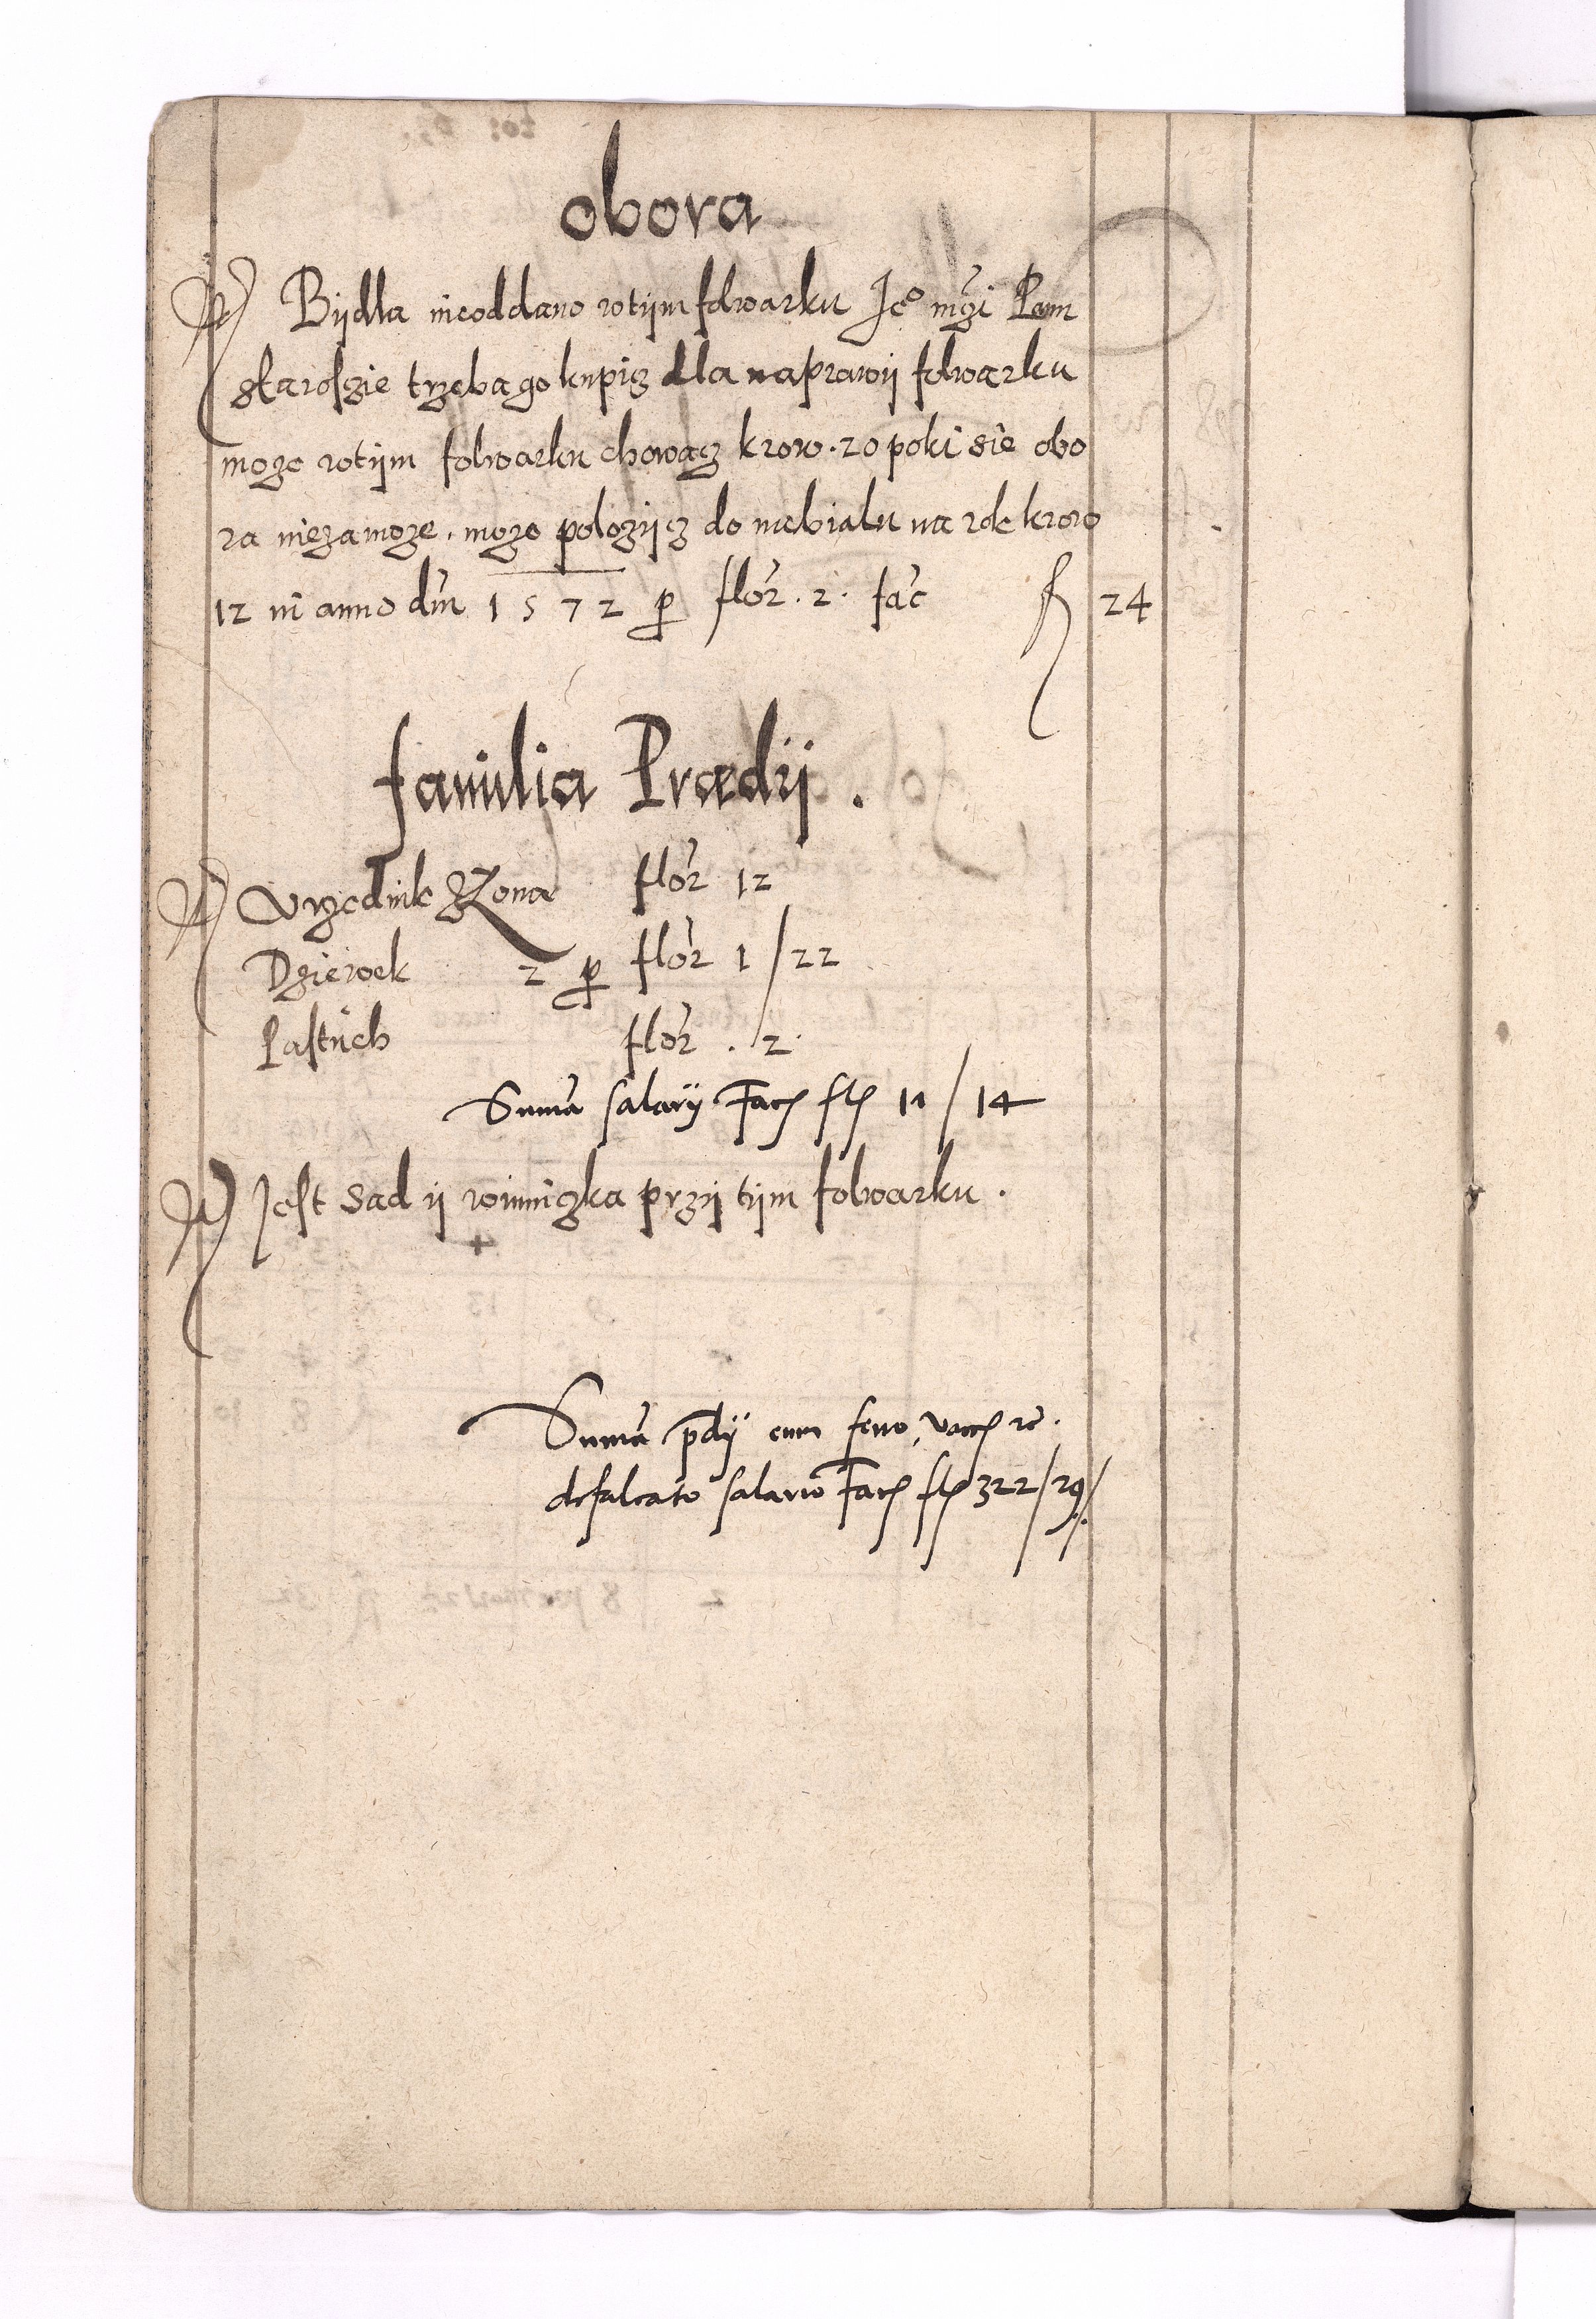 obora
It) Bijdła nieoddano wtijm folwarku Jeo mƶi Pani
staroſzie trzeba go kupicz dla naprawij folwarku
może wtijm folwarku chowacz krow. 20 poki sie obo
ra niezamoze. może polozijcz do nabialu na rok krow
12 in anno dni 1572 per flor. 2. fac f 24
familia Prædij.
It) Vrzednik zZona flor 12
Dziewek 2 per flor 1/22
Paſtuch flor. 2.
Suma salarij Fac fl 17/14
It) Jeſt sad ij winniczka przij tijm folwarku.
Suma pdij cum feno, vaccis rc.
defalcato salario Fac fl 322/29/.